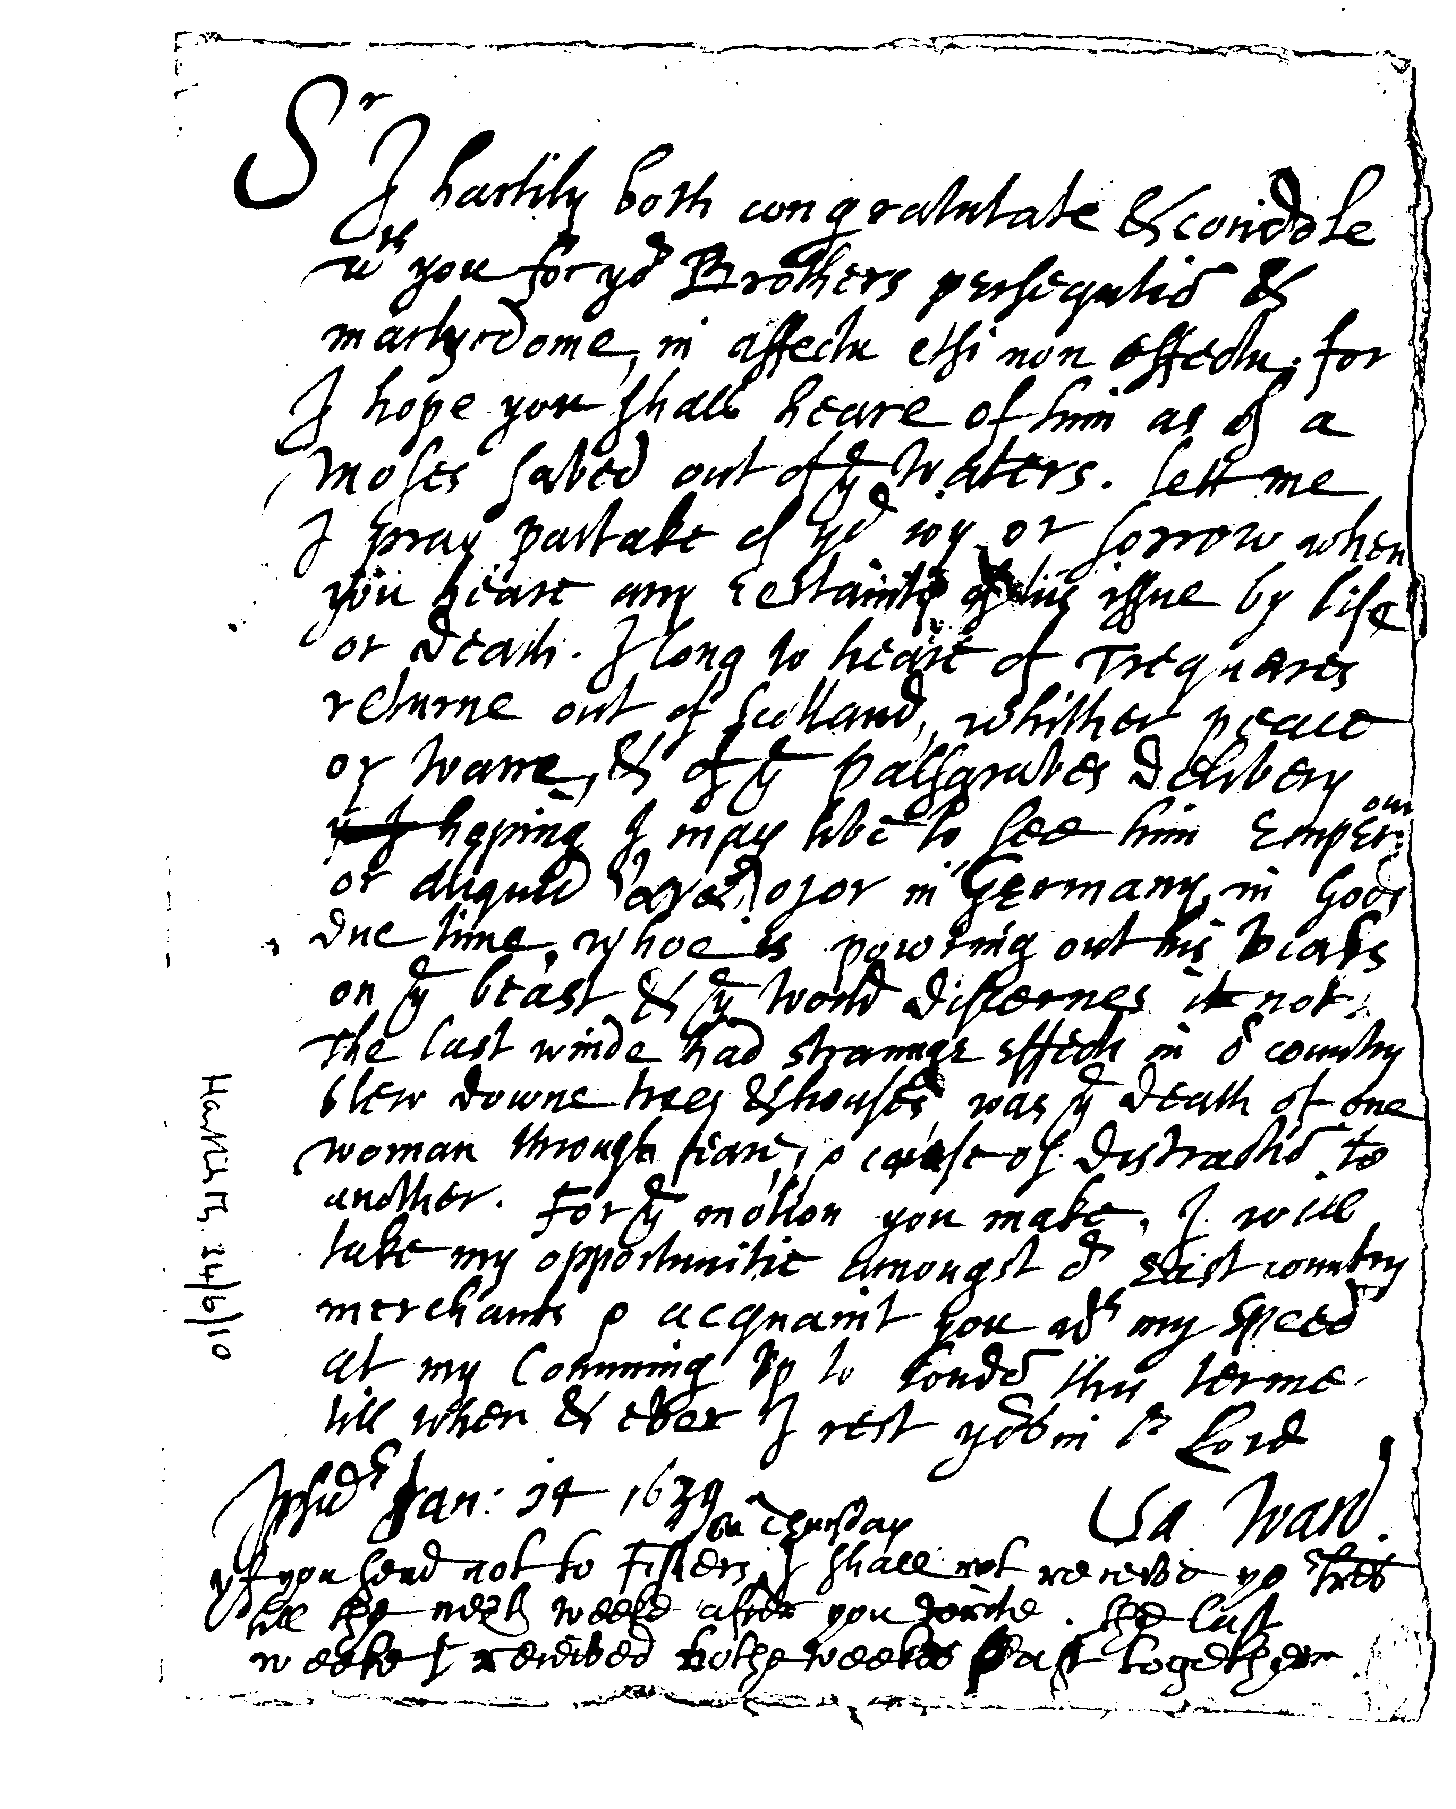 Sr
I hartily both congratulate & condole
wth you for yor Brothers persequutiō &
martyrdome, in affectu etsi non effectu, for
I hope you shall heare of him as of a
Moses saved out of ye Waters. lett me
I pray partake of yor ioy or sorrow when
you heare any certainty of his issue by life
or death. I long to heare of Trequares
returne out of Scotland, whither peace
or warre, & of ye Palsgraves delivery
hoping I may live to see him Emperour
or aliquid in Germany in Gods
due time, whoe is powring out his vials
on ye beast & ye world discernes it not.
The last winde had straunge effects in or country
blew downe trees & houses was ye death of one
woman through feare, & cause of distractiō to
another. For ye motion you make, I will
take my opportunitie amongst or East country
merchants & acquaint you wth my speed
at my Comming Vp to Londō this terme.
till when & ever I rest yors in ye Lord
Ipsw Jan: 14 1639
Sa Ward.
on Thursday
yf you send not to Fishers, I shall not receive yor lres
till the next weeke after you write. the last
weeke I received bothe weekes past together
Hartlib 24/6/10